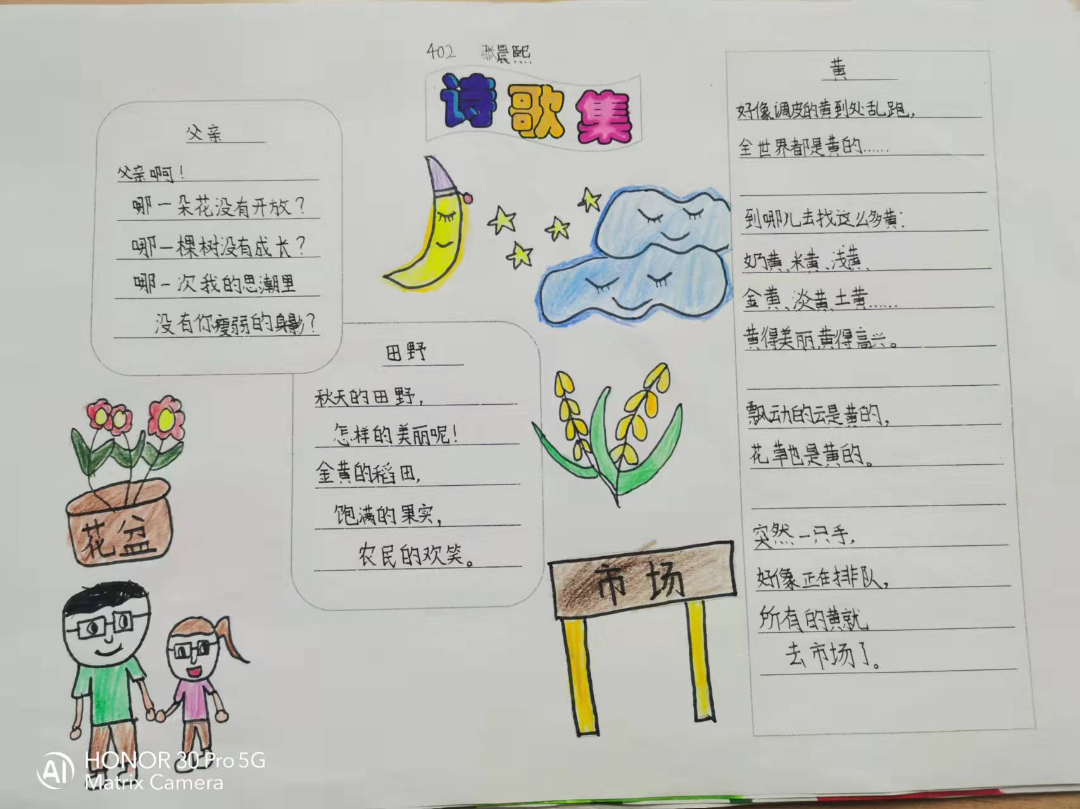 402 张晨熙
诗歌集
父亲
父亲啊!
哪一朵花没有开放?
哪一棵树没有成长?
哪一次我的思潮里
没有你瘦弱的身影?
田野
秋天的田野,
怎样的美丽呢!
金黄的稻田,
饱满的果实,
农民的欢笑。
黄
好像调皮的黄到处乱跑,
全世界都是黄的……
到哪儿去找这么多黄:
奶黄、米黄、浅黄、
金黄、淡黄、土黄……
黄得美丽,黄得高兴。
飘动的云是黄的,
花草也是黄的。
突然一只手,
好像正在排队,
所有的黄就
去市场了。
花盆
市场
AI HONOR 30 Pro 5G
Matrix Camera